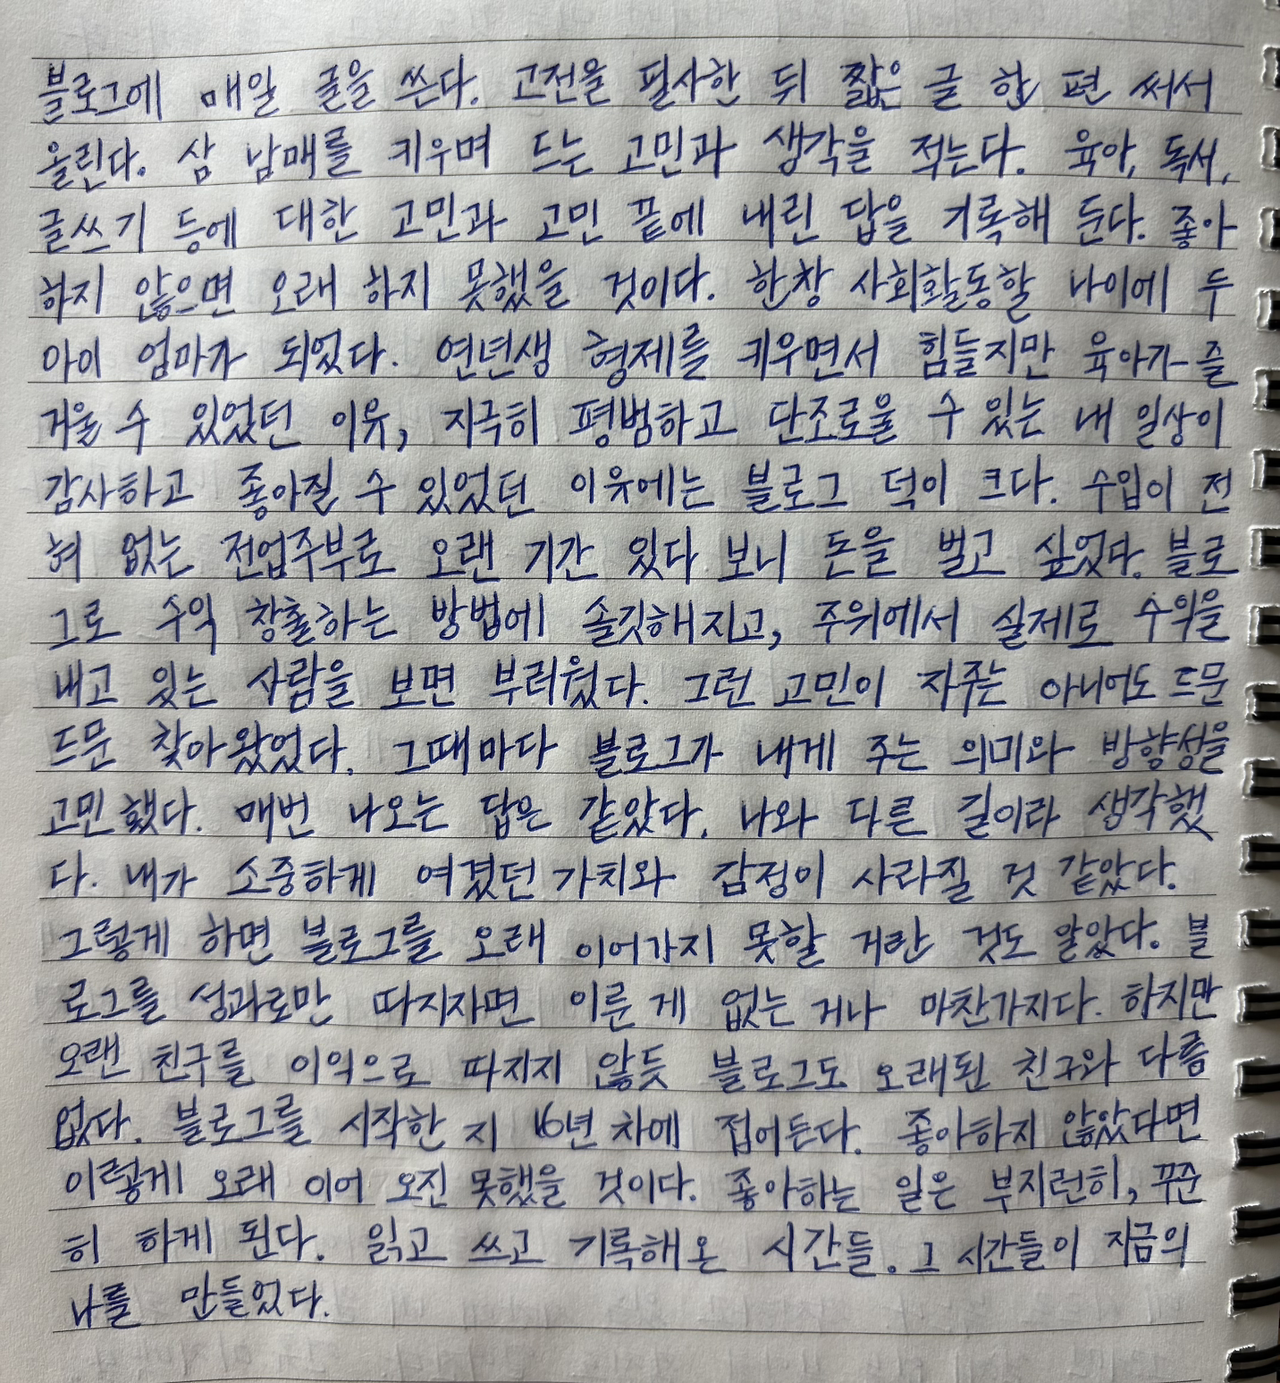 블로그에 매일 글을 쓴다. 고전을 필사한 뒤 짧은 글 한 편 써서
올린다. 삼 남매를 키우며 드는 고민과 생각을 적는다. 육아, 독서,
글쓰기 등에 대한 고민과 고민 끝에 내린 답을 기록해 둔다. 좋아
하지 않으면 오래 하지 못했을 것이다. 한창 사회활동할 나이에 두
아이 엄마가 되었다. 연년생 형제를 키우면서 힘들지만 육아가 즐
거울 수 있었던 이유, 지극히 평범하고 단조로울 수 있는 내 일상이
감사하고 좋아질 수 있었던 이유에는 블로그 덕이 크다. 수입이 전
혀 없는 전업주부로 오랜 기간 있다 보니 돈을 벌고 싶었다. 블로
그로 수익 창출하는 방법에 솔깃해지고, 주위에서 실제로 수익을
내고 있는 사람을 보면 부러웠다. 그런 고민이 자주는 아니어도 드문
드문 찾아왔었다. 그때마다 블로그가 내게 주는 의미와 방향성을
고민했다. 매번 나오는 답은 같았다. 나와 다른 길이라 생각했
다. 내가 소중하게 여겼던 가치와 감정이 사라질 것 같았다.
그렇게 하면 블로그를 오래 이어가지 못할 거란 것도 알았다. 블
로그를 성과로만 따지자면 이룬 게 없는 거나 마찬가지다. 하지만
오랜 친구를 이익으로 따지지 않듯 블로그도 오래된 친구와 다름
없다. 블로그를 시작한 지 16년 차에 접어든다. 좋아하지 않았다면
이렇게 오래 이어 오진 못했을 것이다. 좋아하는 일은 부지런히, 꾸준
히 하게 된다. 읽고 쓰고 기록해온 시간들. 그 시간들이 지금의
나를 만들었다.